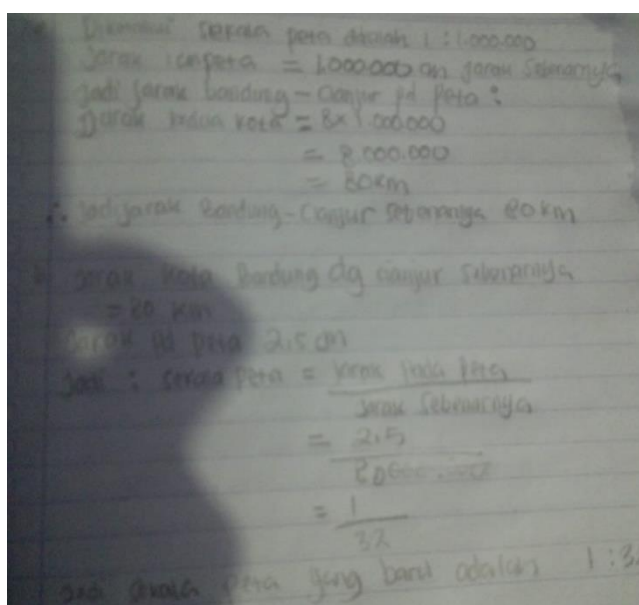 Diketahui skala peta adalah 1 : 1.000.000
Jarak 1 cm peta = 1.000.000 cm jarak sebenarnya
Jadi jarak Bandung - Cianjur pd peta :
Jarak kedua kota = 8 x 1.000.000
= 8.000.000
= 80 km
∴ Jadi jarak Bandung - Cianjur sebenarnya 80 km
jarak kota Bandung dg cianjur sebenarnya
= 80 km
jarak pd peta 2,5 cm
Jadi : skala peta = jarak pada peta
jarak sebenarnya
= 2,5
= 1
32
Jadi skala peta yang baru adalah 1 : 3.